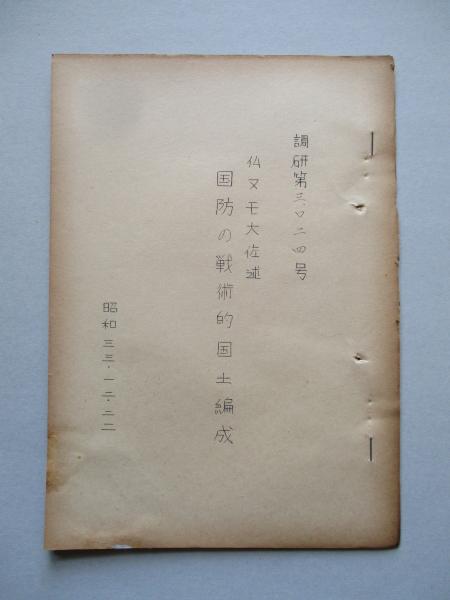 調研第三、〇二四号
仏ヌモ大佐述
国防の戦術的国土編成
昭和三三・一二・二二